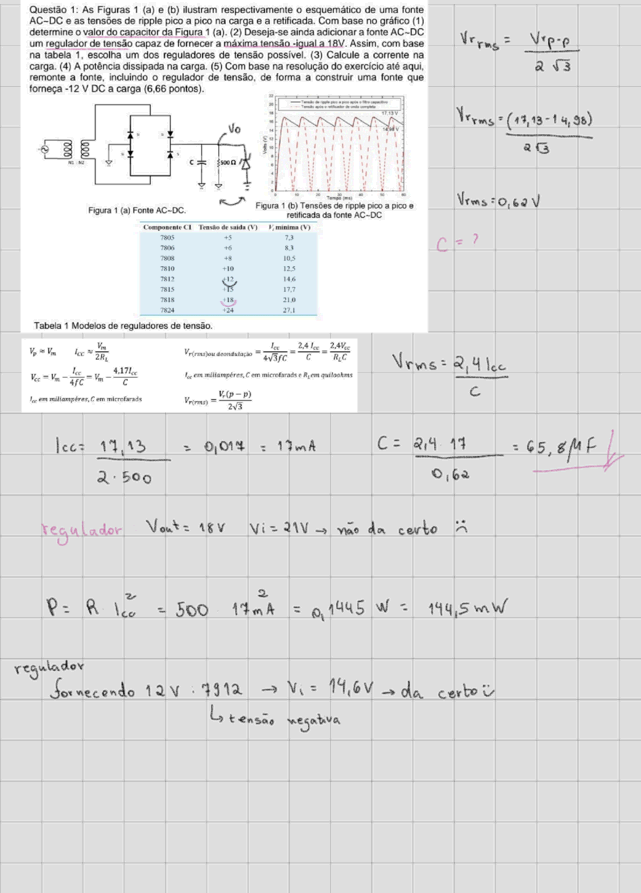 Questão 1: As Figuras 1 (a) e (b) ilustram respectivamente o esquemático de uma fonte
AC–DC e as tensões de ripple pico a pico na carga e a retificada. Com base no gráfico (1)
determine o valor do capacitor da Figura 1 (a). (2) Deseja-se ainda adicionar a fonte AC–DC
um regulador de tensão capaz de fornecer a máxima tensão -igual a 18V. Assim, com base
na tabela 1, escolha um dos reguladores de tensão possível. (3) Calcule a corrente na
carga. (4) A potência dissipada na carga. (5) Com base na resolução do exercício até aqui,
remonte a fonte, incluindo o regulador de tensão, de forma a construir uma fonte que
forneça -12 V DC a carga (6,66 pontos).
Vr rms = Vr p-p / 2 √3
Vr rms = (17,13 - 14,98) / 2 √3
Vrms = 0,62 V
C = ?
Vo
N1 : N2
C
500 Ω
Tensão de ripple pico a pico após o filtro capacitivo
Tensão após o retificador de onda completa
17,13 V
14,98 V
Volts (V)
Tempo (ms)
Figura 1 (a) Fonte AC-DC.
Figura 1 (b) Tensões de ripple pico a pico e
retificada da fonte AC-DC
Componente CI Tensão de saída (V) Vi mínima (V)
7805 +5 7,3
7806 +6 8,3
7808 +8 10,5
7810 +10 12,5
7812 +12 14,6
7815 +15 17,7
7818 +18 21,0
7824 +24 27,1
Tabela 1 Modelos de reguladores de tensão.
Vp = Vm Icc ≈ Vm / 2RL
Vr(rms)ou deondulação = Icc / 4√3fC = 2,4 Icc / C = 2,4Vcc / RLC
Vcc = Vm − Icc / 4fC = Vm − 4,17Icc / C
Icc em miliampères, C em microfarads e RL em quilaohms
Icc em miliampères, C em microfarads
Vr(rms) = Vr(p − p) / 2√3
Vrms = 2,4 Icc / C
Icc = 17,13 / 2 · 500 = 0,017 = 17mA
C = 2,4 · 17 / 0,62 = 65,8 μF
regulador Vout = 18V Vi = 21V → não da certo :(
P = R · Icc² = 500 17mA² = 0,1445 W = 144,5 mW
regulador
fornecendo 12V · 7912 → Vi = 14,6V → da certo :)
↳ tensão negativa